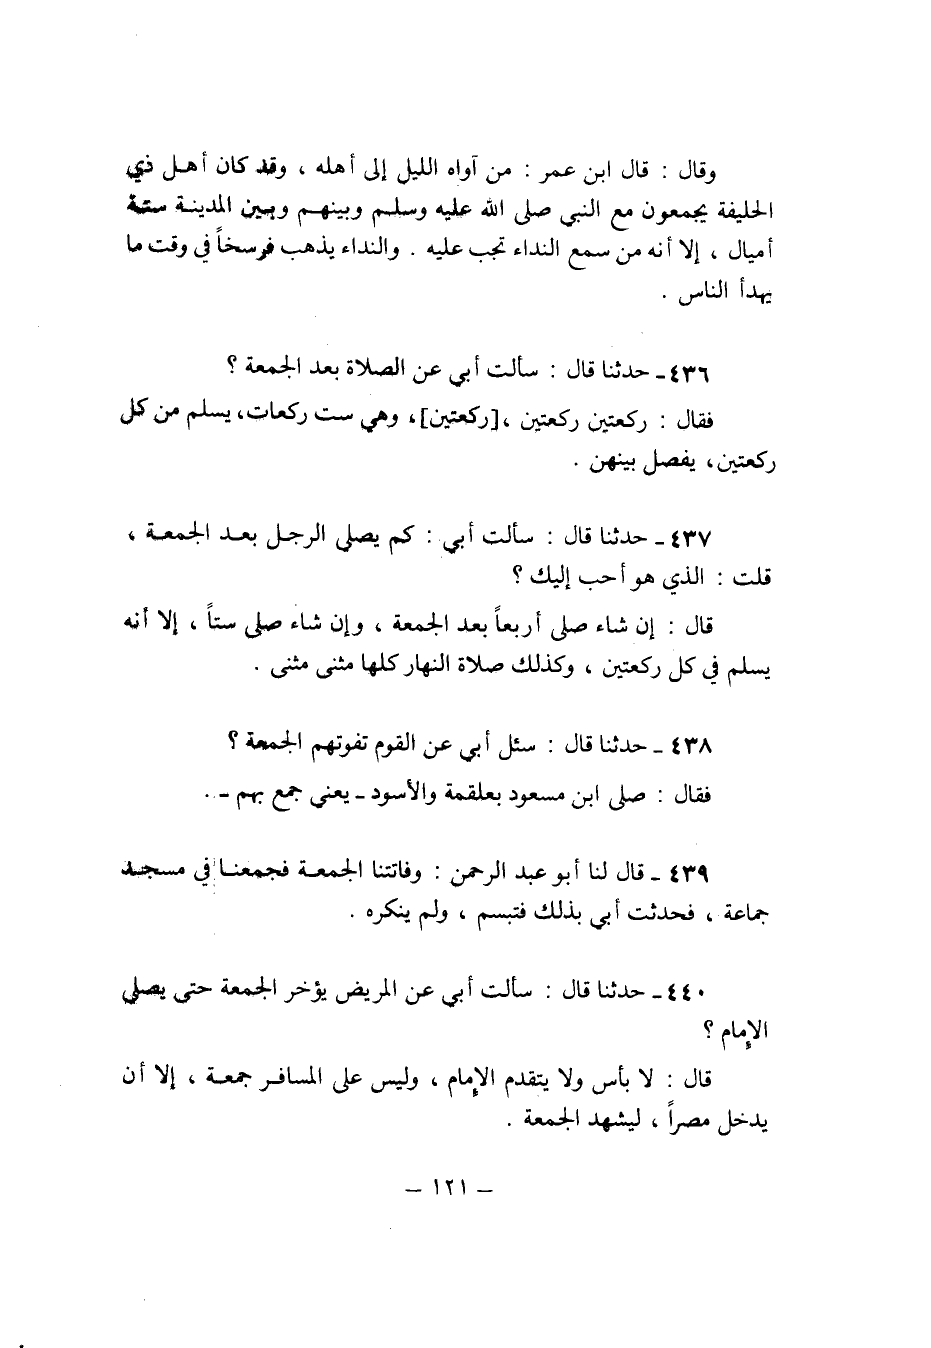 وقال : قال ابن عمر : من آواه الليل إلى أهله ، وقد كان أهل ذي
الحليفة يجمعون مع النبي صلى الله عليه وسلم وبينهم وبين المدينة ستة
أميال ، إلا أنه من سمع النداء تجب عليه . والنداء يذهب فرسخاً في وقت ما
يهدأ الناس .
٤٣٦ـ حدثنا قال : سألت أبي عن الصلاة بعد الجمعة ؟
فقال : ركعتين ركعتين ،[ركعتين]، وهي ست ركعات، يسلم من كل
ركعتين، يفصل بينهن .
٤٣٧ ـ حدثنا قال : سألت أبي : كم يصلي الرجل بعد الجمعة ،
قلت : الذي هو أحب إليك ؟
قال : إن شاء صلى أربعاً بعد الجمعة ، وإن شاء صلى ستاً ، إلا أنه
يسلم في كل ركعتين ، وكذلك صلاة النهار كلها مثنى مثنى .
٤٣٨ ـ حدثنا قال : سئل أبي عن القوم تفوتهم الجمعة ؟
فقال : صلى ابن مسعود بعلقمة والأسود ـ يعني جمع بهم ـ .
٤٣٩ ـ قال لنا أبو عبد الرحمن : وفاتتنا الجمعة فجمعنا في مسجد
جماعة ، فحدثت أبي بذلك فتبسم ، ولم ينكره .
٤٤٠ـ حدثنا قال : سألت أبي عن المريض يؤخر الجمعة حتى يصلي
الإمام ؟
قال : لا بأس ولا يتقدم الإمام ، وليس على المسافر جمعة ، إلا أن
يدخل مصراً ، ليشهد الجمعة .
– ١٢١ –